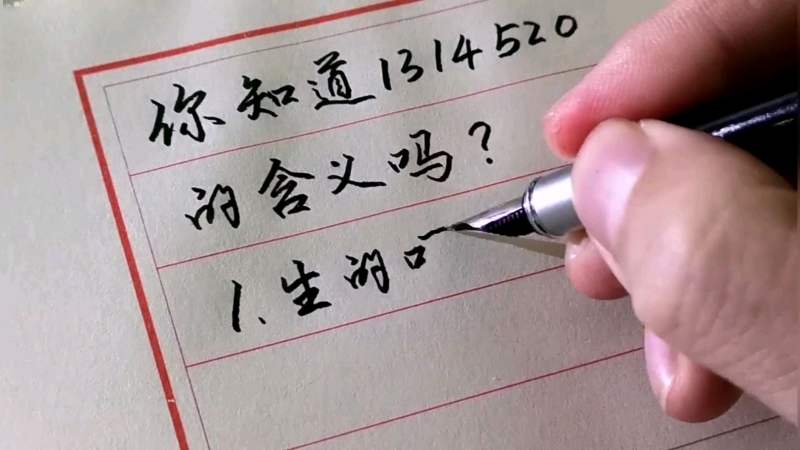 你知道1314520
的含义吗？
1.生的